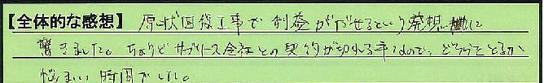 【全体的な感想】原状回復工事で利益がだせるという発想に
驚きました。ちょうどサブリース会社との契約が切れる手前なので、どうつとるか
悩ましい時間でした。